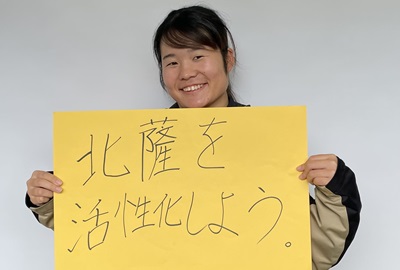 北薩を
活性化しよう。